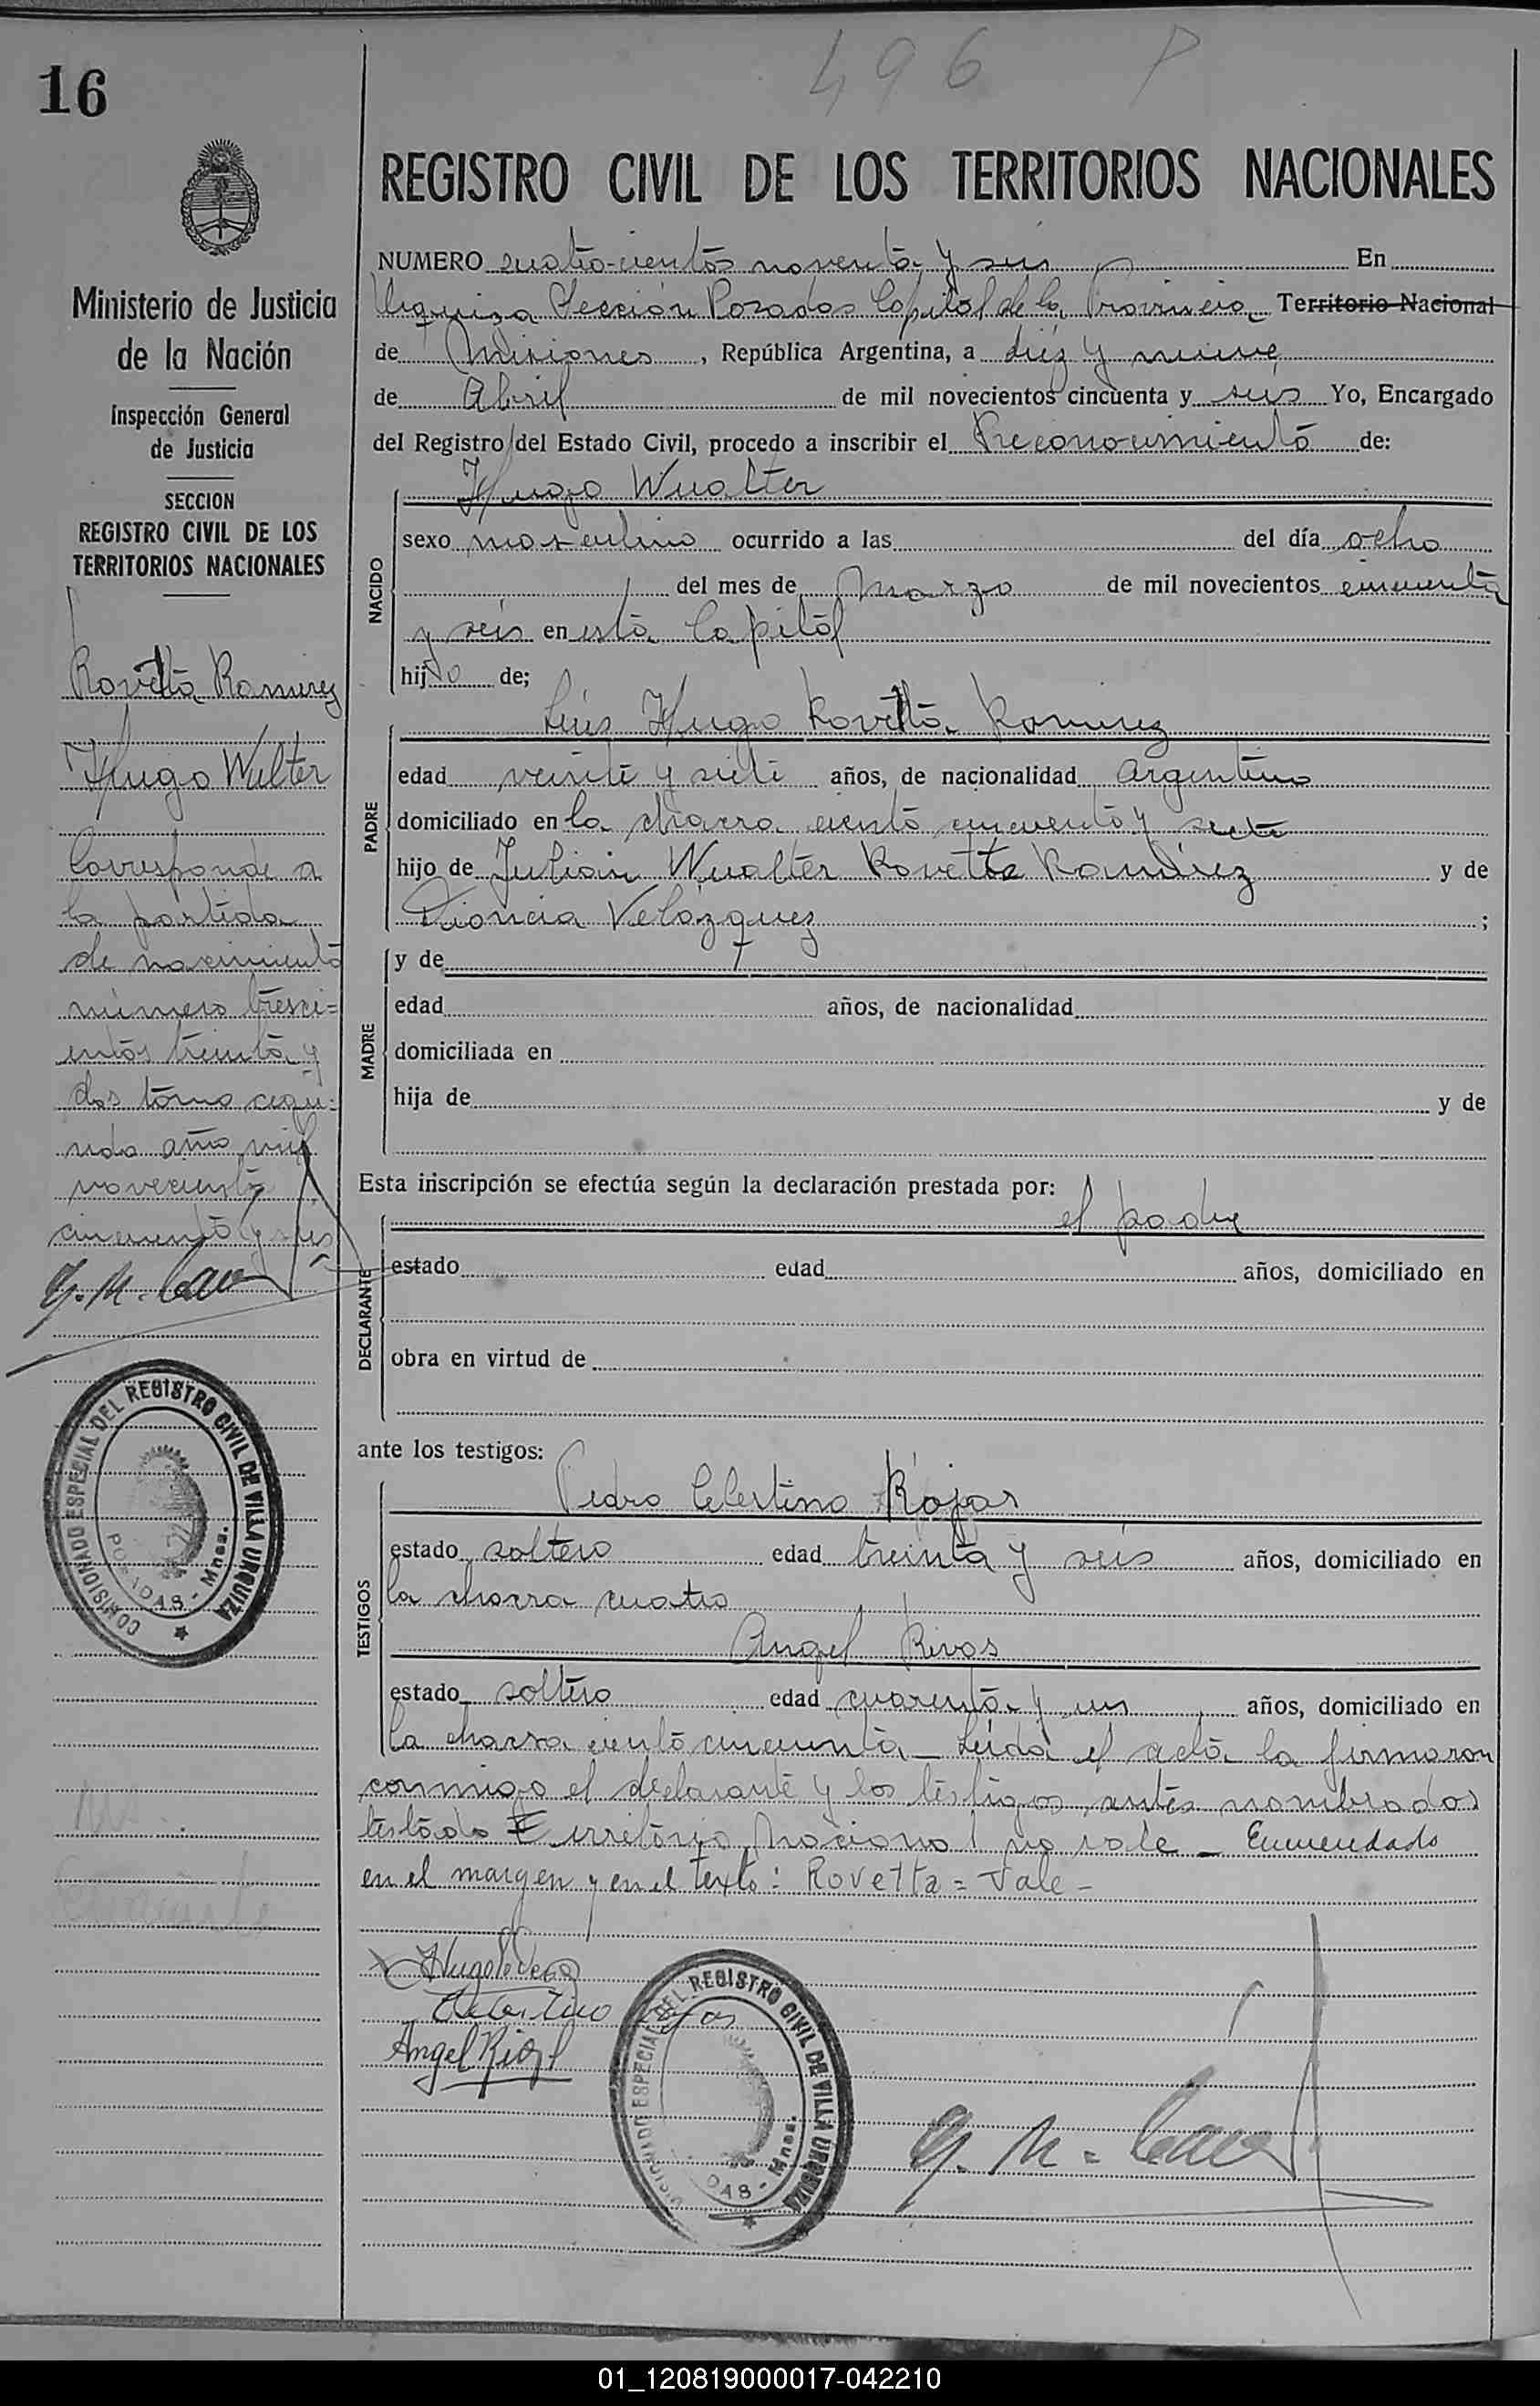 496 P
16
REGISTRO CIVIL DE LOS TERRITORIOS NACIONALES
Ministerio de Justicia
de la Nación
Inspección General
de Justicia
SECCION
REGISTRO CIVIL DE LOS
TERRITORIOS NACIONALES
Rovetta Ramirez
Hugo Walter
Corresponde a
la partida
de nacimiento
número tresci=
entos treinta y
dos tomo cegu=
ndo año mil
novecientos
cincuenta y seis
G. M.
COMISIONADO ESPECIAL DEL REGISTRO CIVIL DE VILLA URQUIZA
POSADAS - Mnes.
NUMERO cuatro-cientos noventa y seis En
Urquiza Sección Posadas Capital de la Provincia Territorio Nacional
de Misiones, República Argentina, a diez y nueve
de Abril de mil novecientos cincuenta y seis Yo, Encargado
del Registro del Estado Civil, procedo a inscribir el Reconocimiento de:
NACIDO
Hugo Wualter
sexo masculino ocurrido a las del día ocho
del mes de Marzo de mil novecientos cincuenta
y seis en esta Capital
hijo de;
PADRE
Luis Hugo Rovetta Ramirez
edad veinte y siete años, de nacionalidad Argentino
domiciliado en la chacra ciento cincuenta y siete
hijo de Julian Wualter Rovetta Ramirez y de
Dioncia Velazquez ;
MADRE
y de
edad años, de nacionalidad
domiciliada en
hija de y de
Esta inscripción se efectúa según la declaración prestada por:
el padre
DECLARANTE
estado edad años, domiciliado en
obra en virtud de
ante los testigos:
TESTIGOS
Pedro Celestino Rojas
estado soltero edad treinta y seis años, domiciliado en
la chacra cuatro
Angel Rivas
estado soltero edad cuarenta y un años, domiciliado en
la chacra ciento cincuenta - Leida el acta la firmaron
conmigo el declarante y los testigos antes nombrados
testado Territorio Nacional no vale - Enmendado
en el margen y en el texto: Rovetta = Vale -
Celestino Rojas
Angel
COMISIONADO ESPECIAL DEL REGISTRO CIVIL DE VILLA URQUIZA
POSADAS - Mnes.
G. M.
01_120819000017-042210